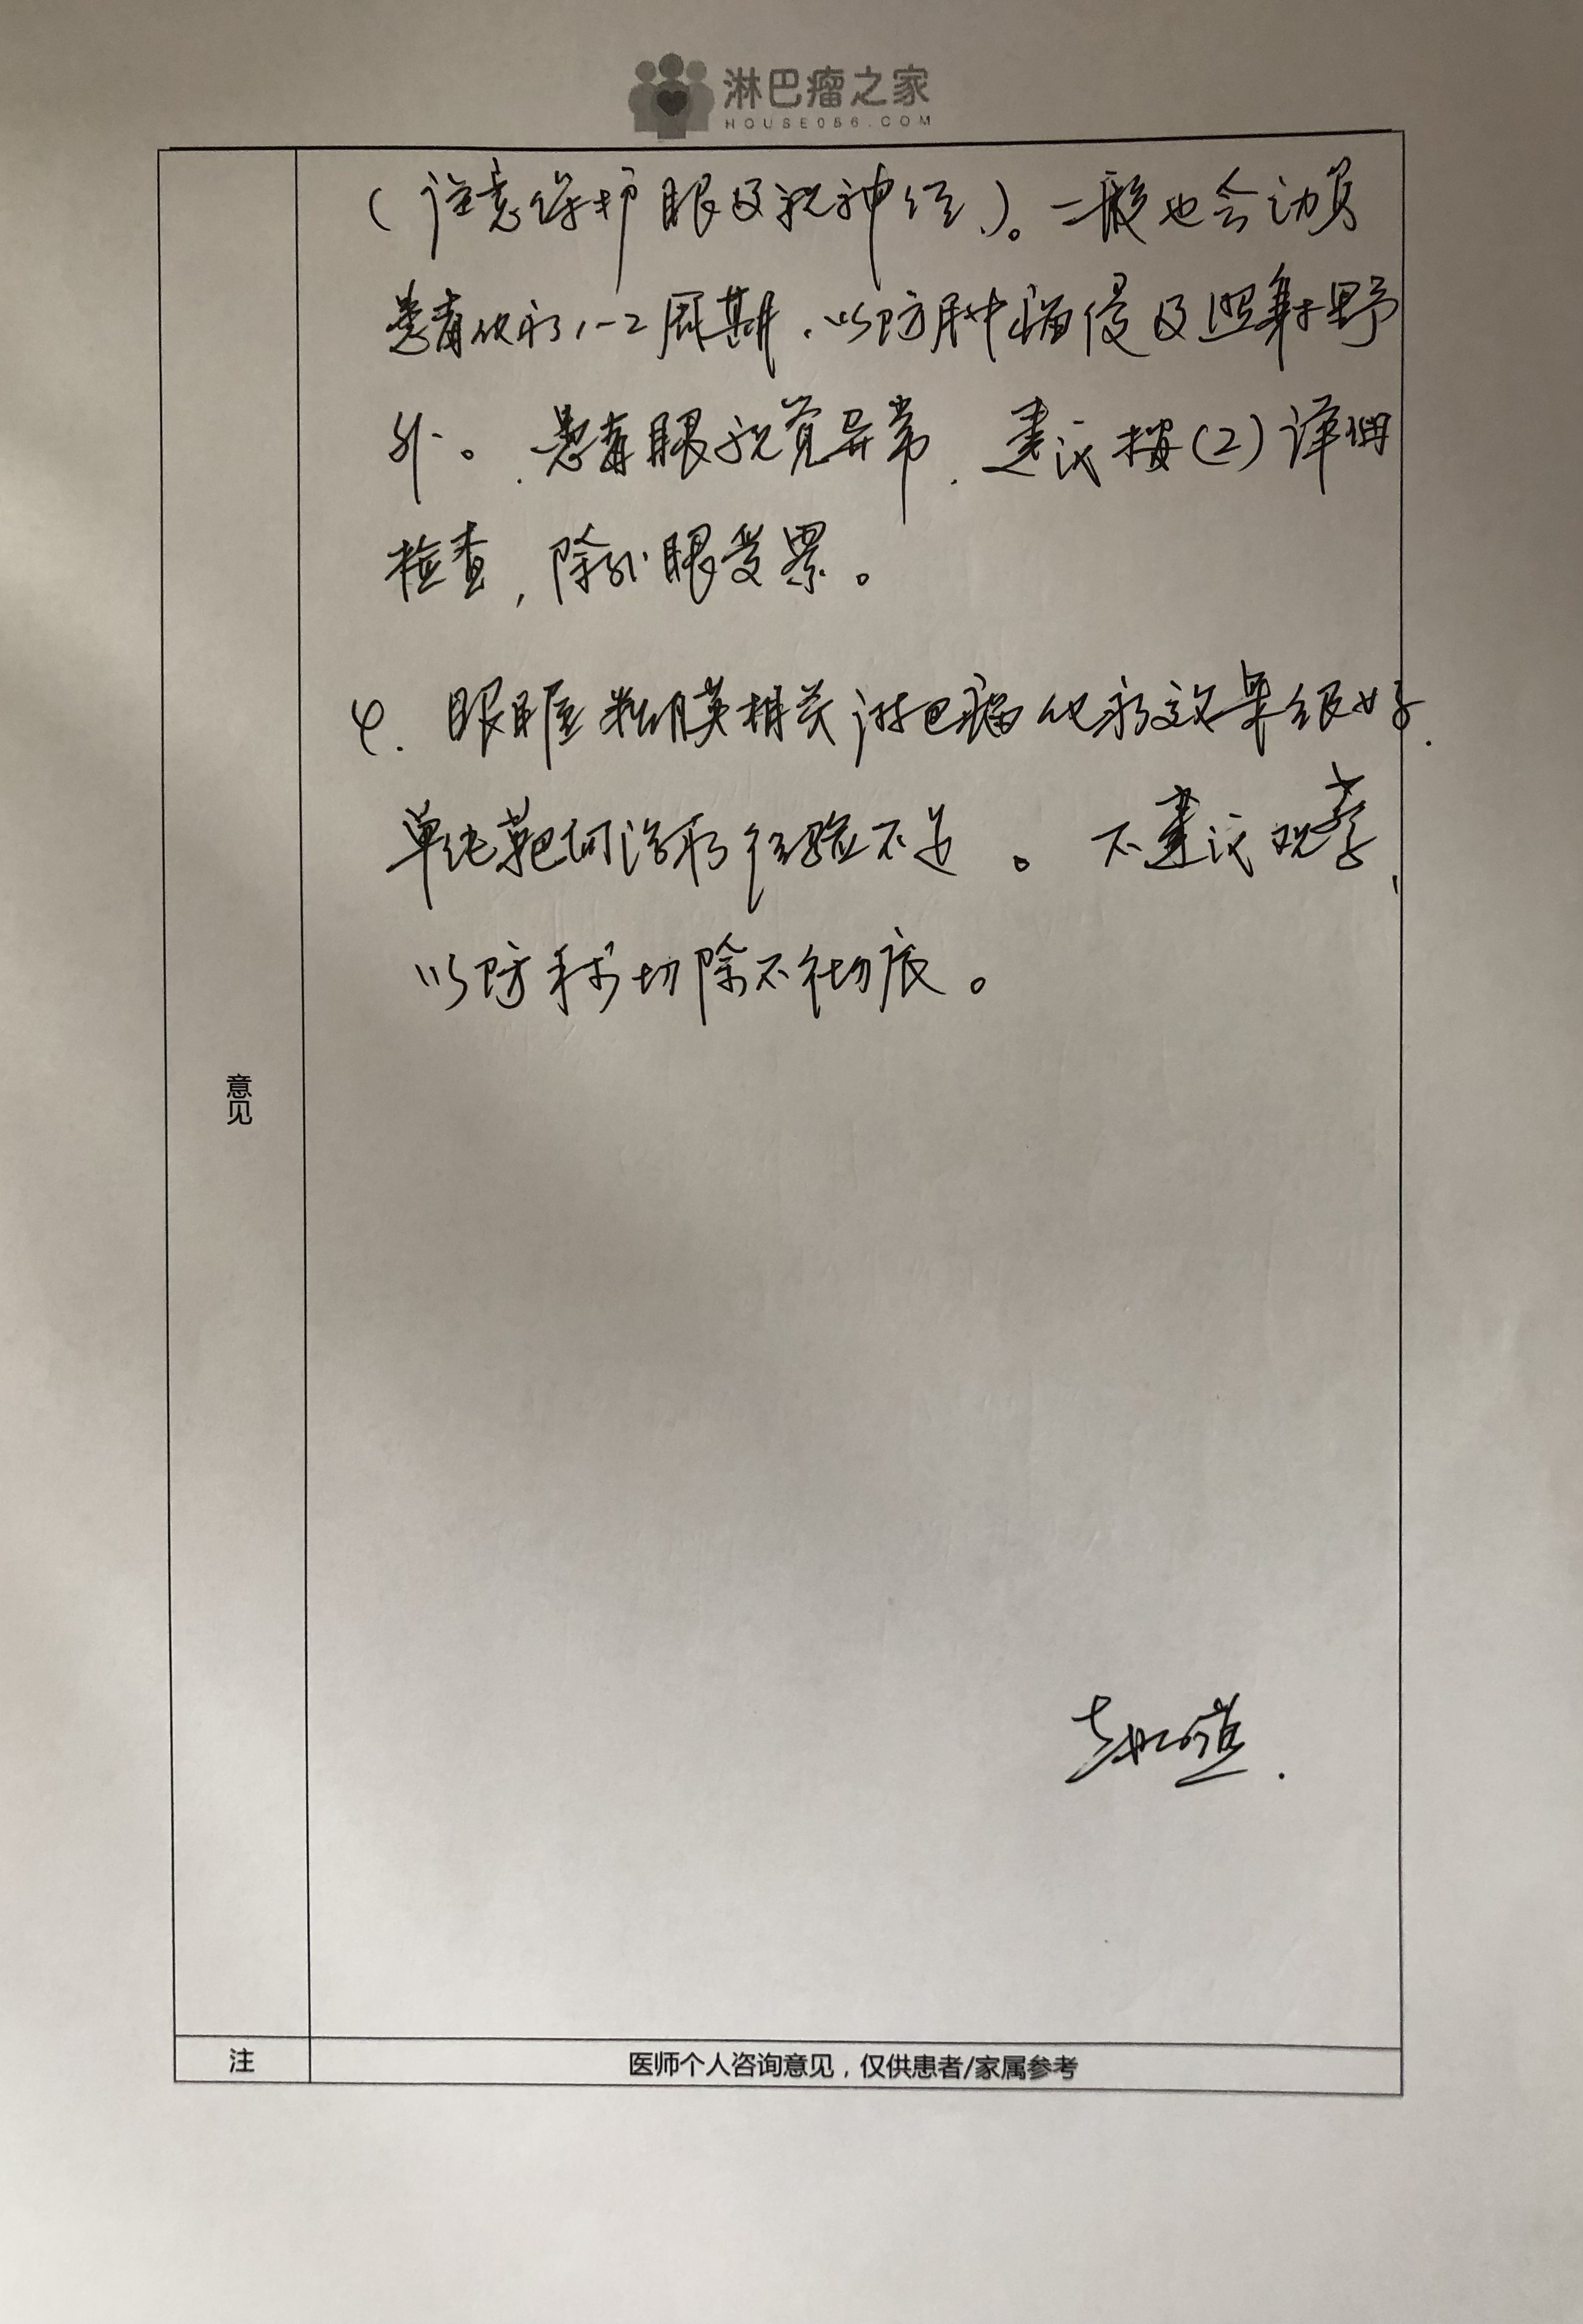 淋巴瘤之家
HOUSE086.COM
(注意保护眼及视神经)。一般也会动员
患者化疗1-2周期，以防肿瘤侵及照射野
外。患者眼视觉异常，建议按(2)详细
检查，除外眼受累。
4. 眼眶粘膜相关淋巴瘤化疗效果很好.
单纯靶向治疗经验不足。不建议观察，
以防手术切除不彻底。
意见
注
医师个人咨询意见，仅供患者/家属参考